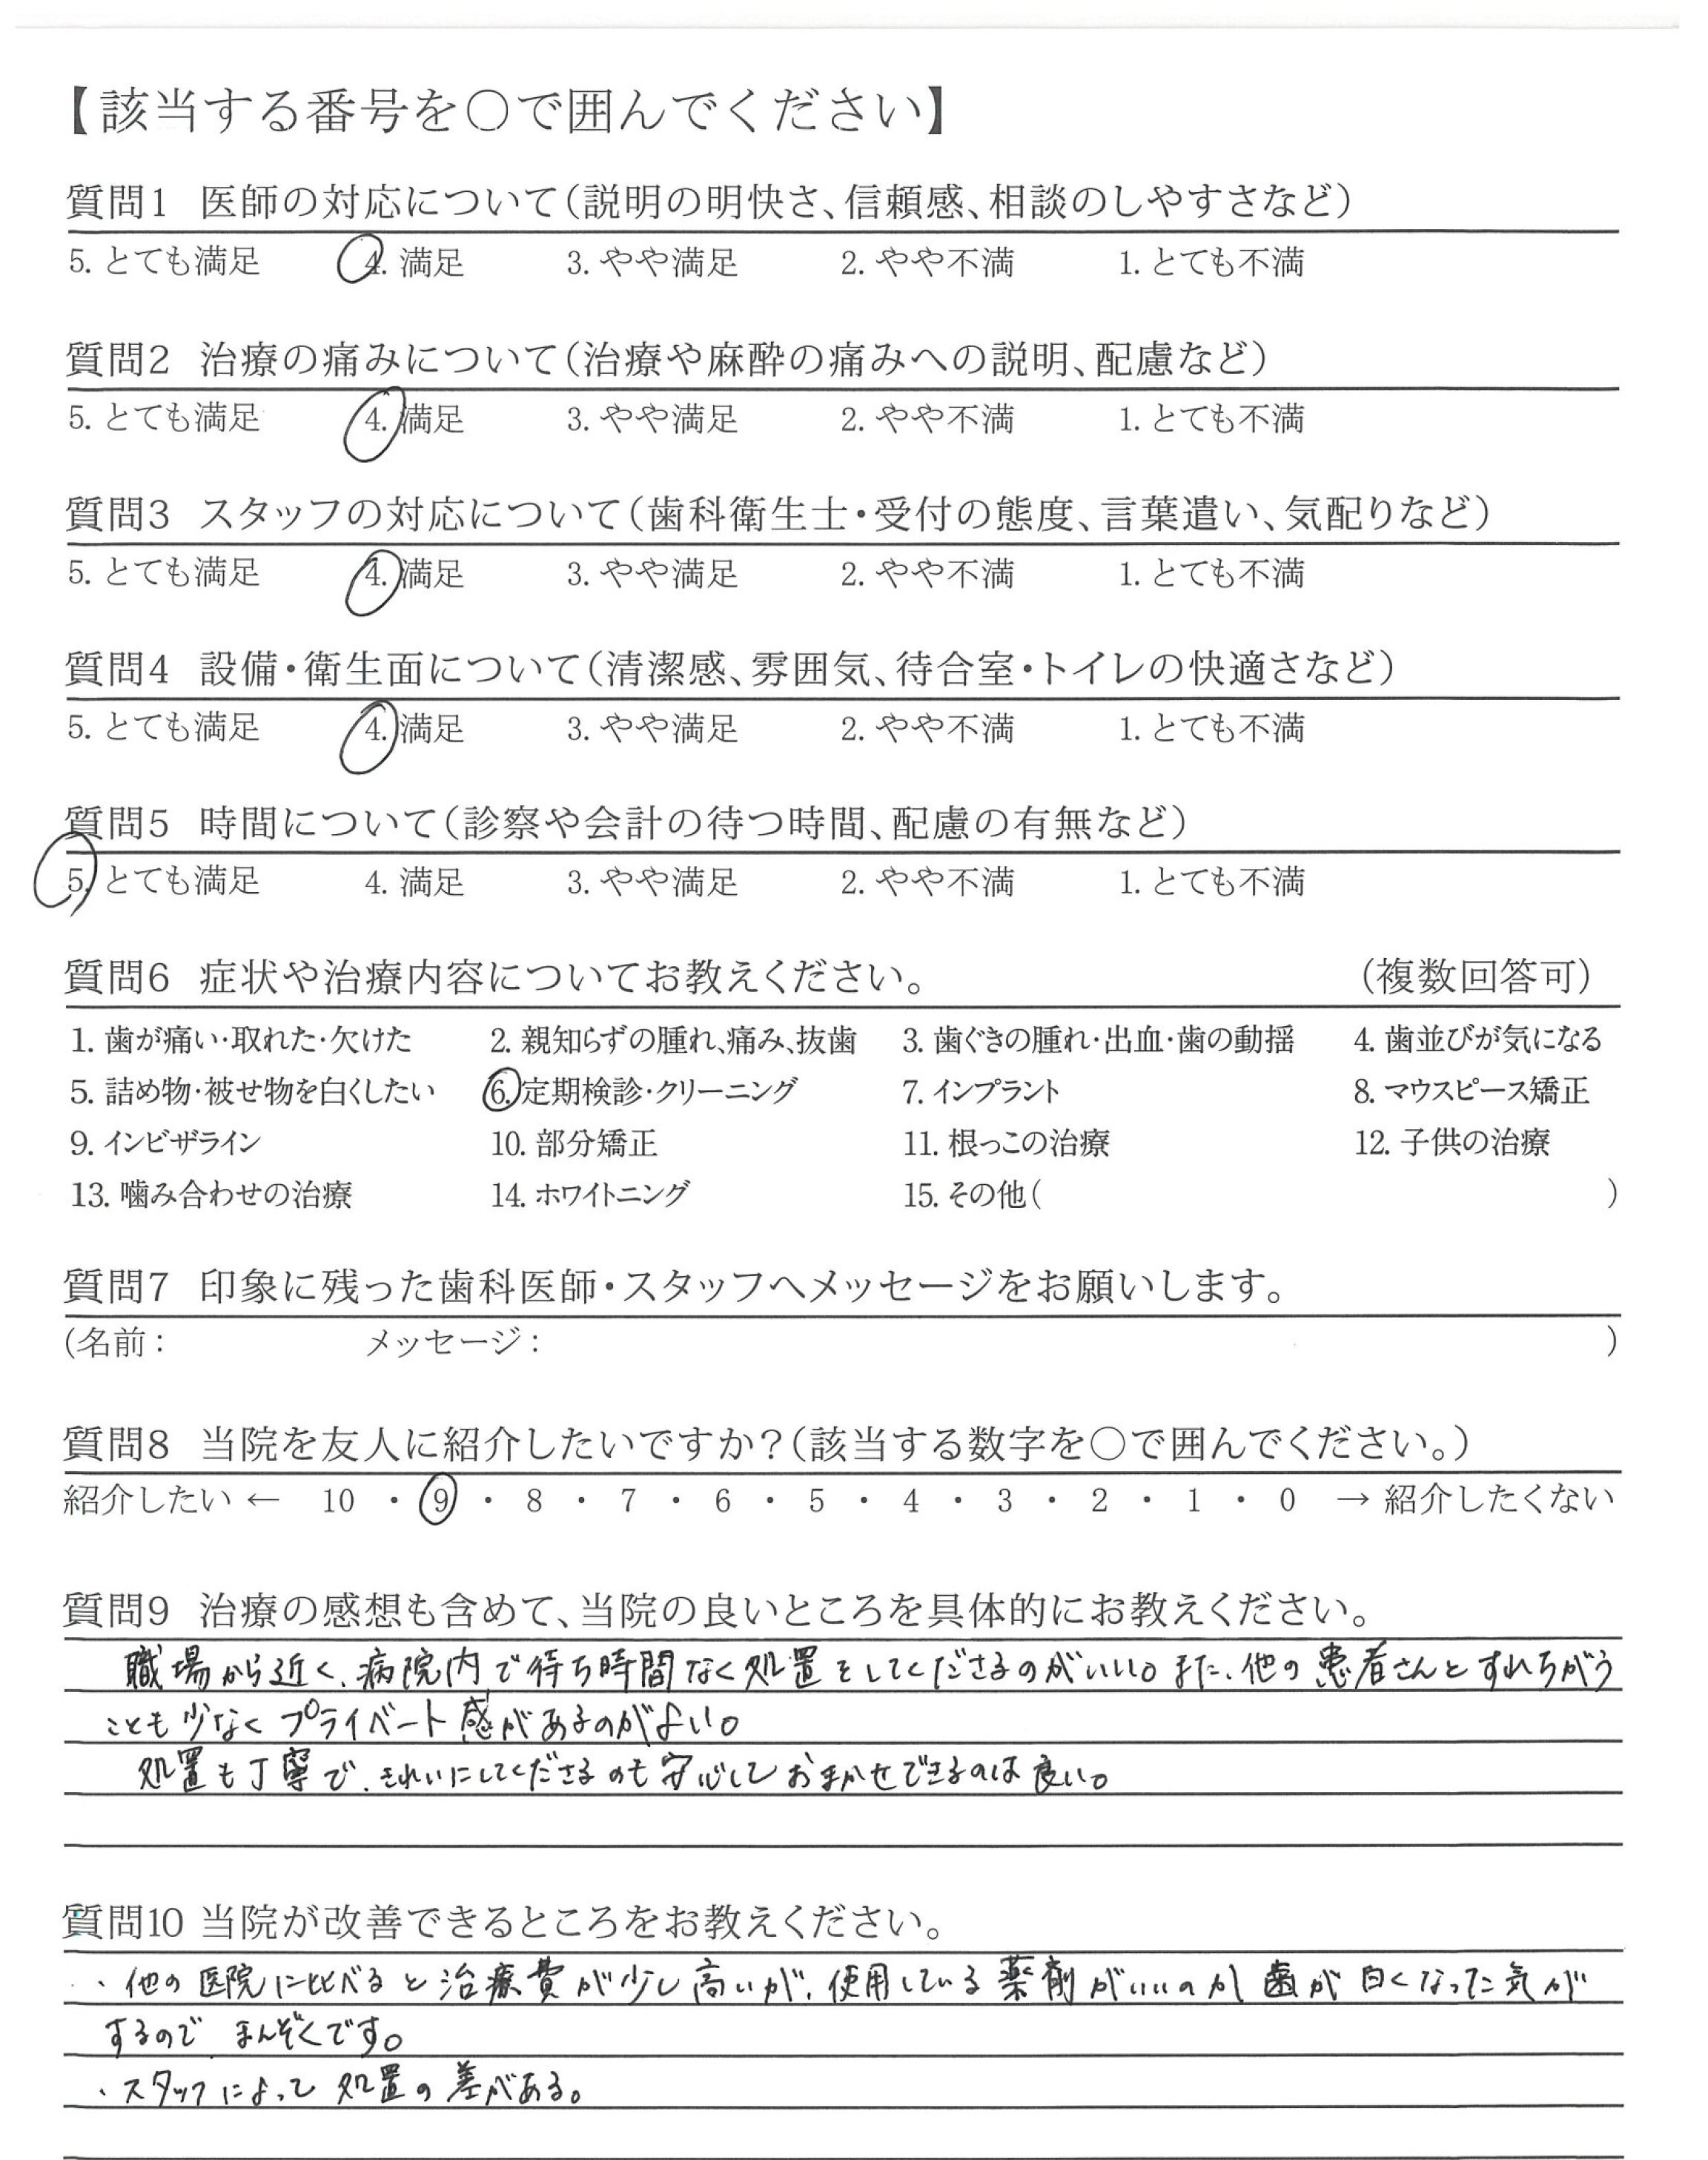 【該当する番号を〇で囲んでください】
質問1 医師の対応について（説明の明快さ、信頼感、相談のしやすさなど）
5. とても満足 4. 満足 3. やや満足 2. やや不満 1. とても不満
質問2 治療の痛みについて（治療や麻酔の痛みへの説明、配慮など）
5. とても満足 4. 満足 3. やや満足 2. やや不満 1. とても不満
質問3 スタッフの対応について（歯科衛生士・受付の態度、言葉遣い、気配りなど）
5. とても満足 4. 満足 3. やや満足 2. やや不満 1. とても不満
質問4 設備・衛生面について（清潔感、雰囲気、待合室・トイレの快適さなど）
5. とても満足 4. 満足 3. やや満足 2. やや不満 1. とても不満
質問5 時間について（診察や会計の待つ時間、配慮の有無など）
5. とても満足 4. 満足 3. やや満足 2. やや不満 1. とても不満
質問6 症状や治療内容についてお教えください。 （複数回答可）
1. 歯が痛い・取れた・欠けた 2. 親知らずの腫れ、痛み、抜歯 3. 歯ぐきの腫れ・出血・歯の動揺 4. 歯並びが気になる
5. 詰め物・被せ物を白くしたい 6. 定期検診・クリーニング 7. インプラント 8. マウスピース矯正
9. インビザライン 10. 部分矯正 11. 根っこの治療 12. 子供の治療
13. 噛み合わせの治療 14. ホワイトニング 15. その他（ ）
質問7 印象に残った歯科医師・スタッフへメッセージをお願いします。
（名前： メッセージ： ）
質問8 当院を友人に紹介したいですか？（該当する数字を〇で囲んでください。）
紹介したい ← 10 ・ 9 ・ 8 ・ 7 ・ 6 ・ 5 ・ 4 ・ 3 ・ 2 ・ 1 ・ 0 → 紹介したくない
質問9 治療の感想も含めて、当院の良いところを具体的にお教えください。
職場から近く、病院内で待ち時間なく処置をしてくださるのがいい。また、他の患者さんとすれちがう
ことも少なくプライベート感があるのがよい。
処置も丁寧で、きれいにしてくださるのも安心しておまかせできるのは良い。
質問10 当院が改善できるところをお教えください。
・他の医院に比べると治療費が少し高いが、使用している薬剤がいいのか歯が白くなった気が
するので、まんぞくです。
・スタッフによって処置の差がある。